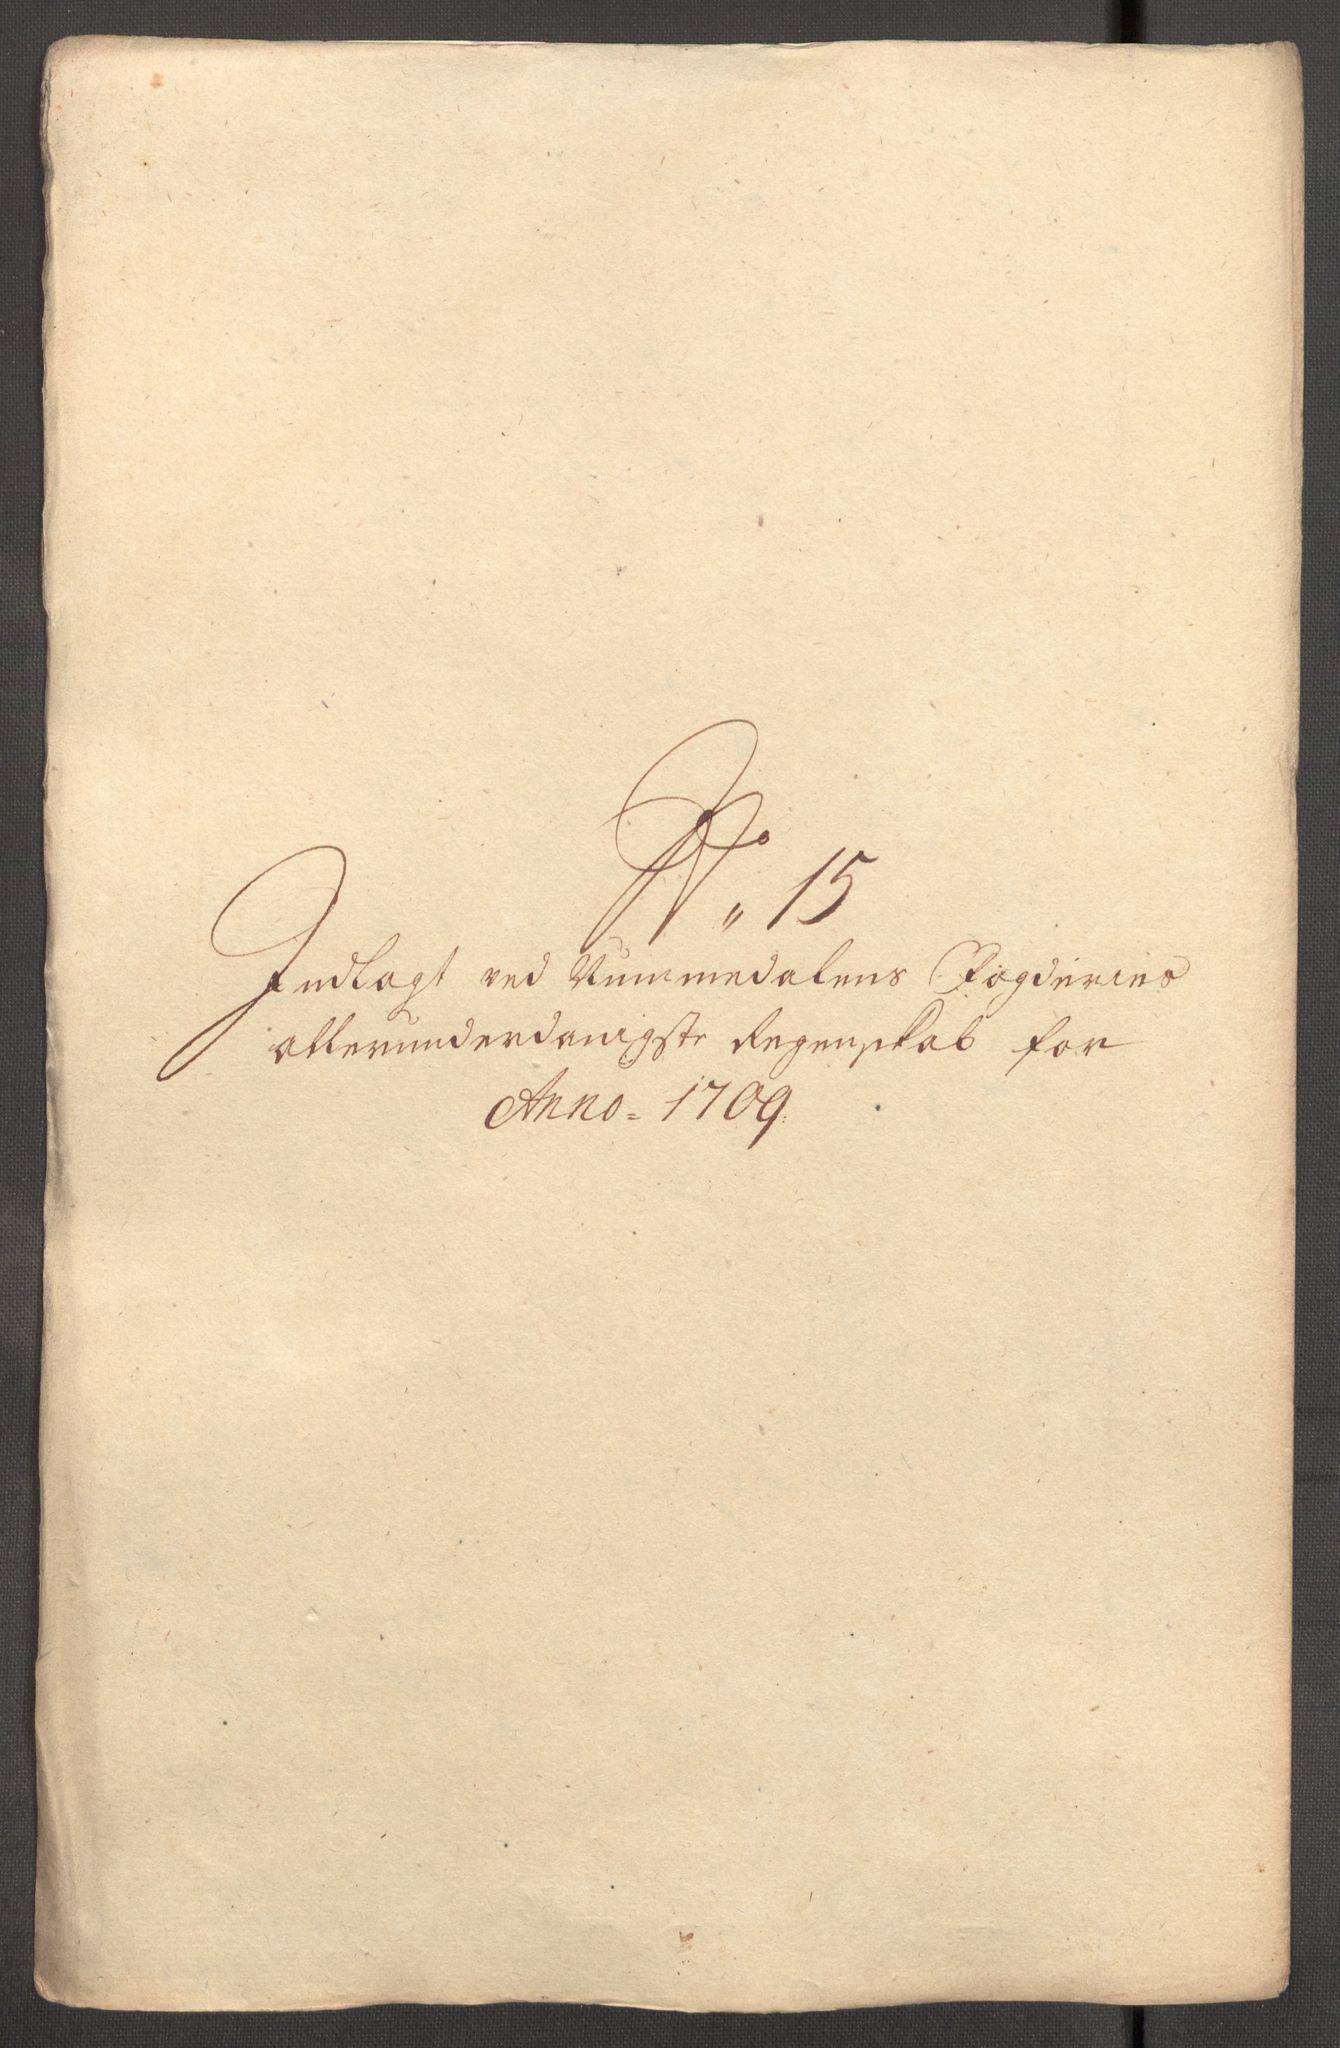 No. 15
Indlagt ved Nummedalens Fogderies
allerunderdanigste Regenskab for
Anno = 1709